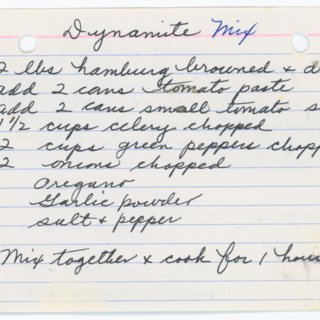 Dynamite Mix
2 lbs hamburg browned + d
add 2 cans tomato paste
add 2 cans small tomato s
1 1/2 cups celery chopped
2 cups green peppers chopp
2 onions chopped
Oregano
Garlic powder
salt + pepper
Mix together + cook for 1 hour